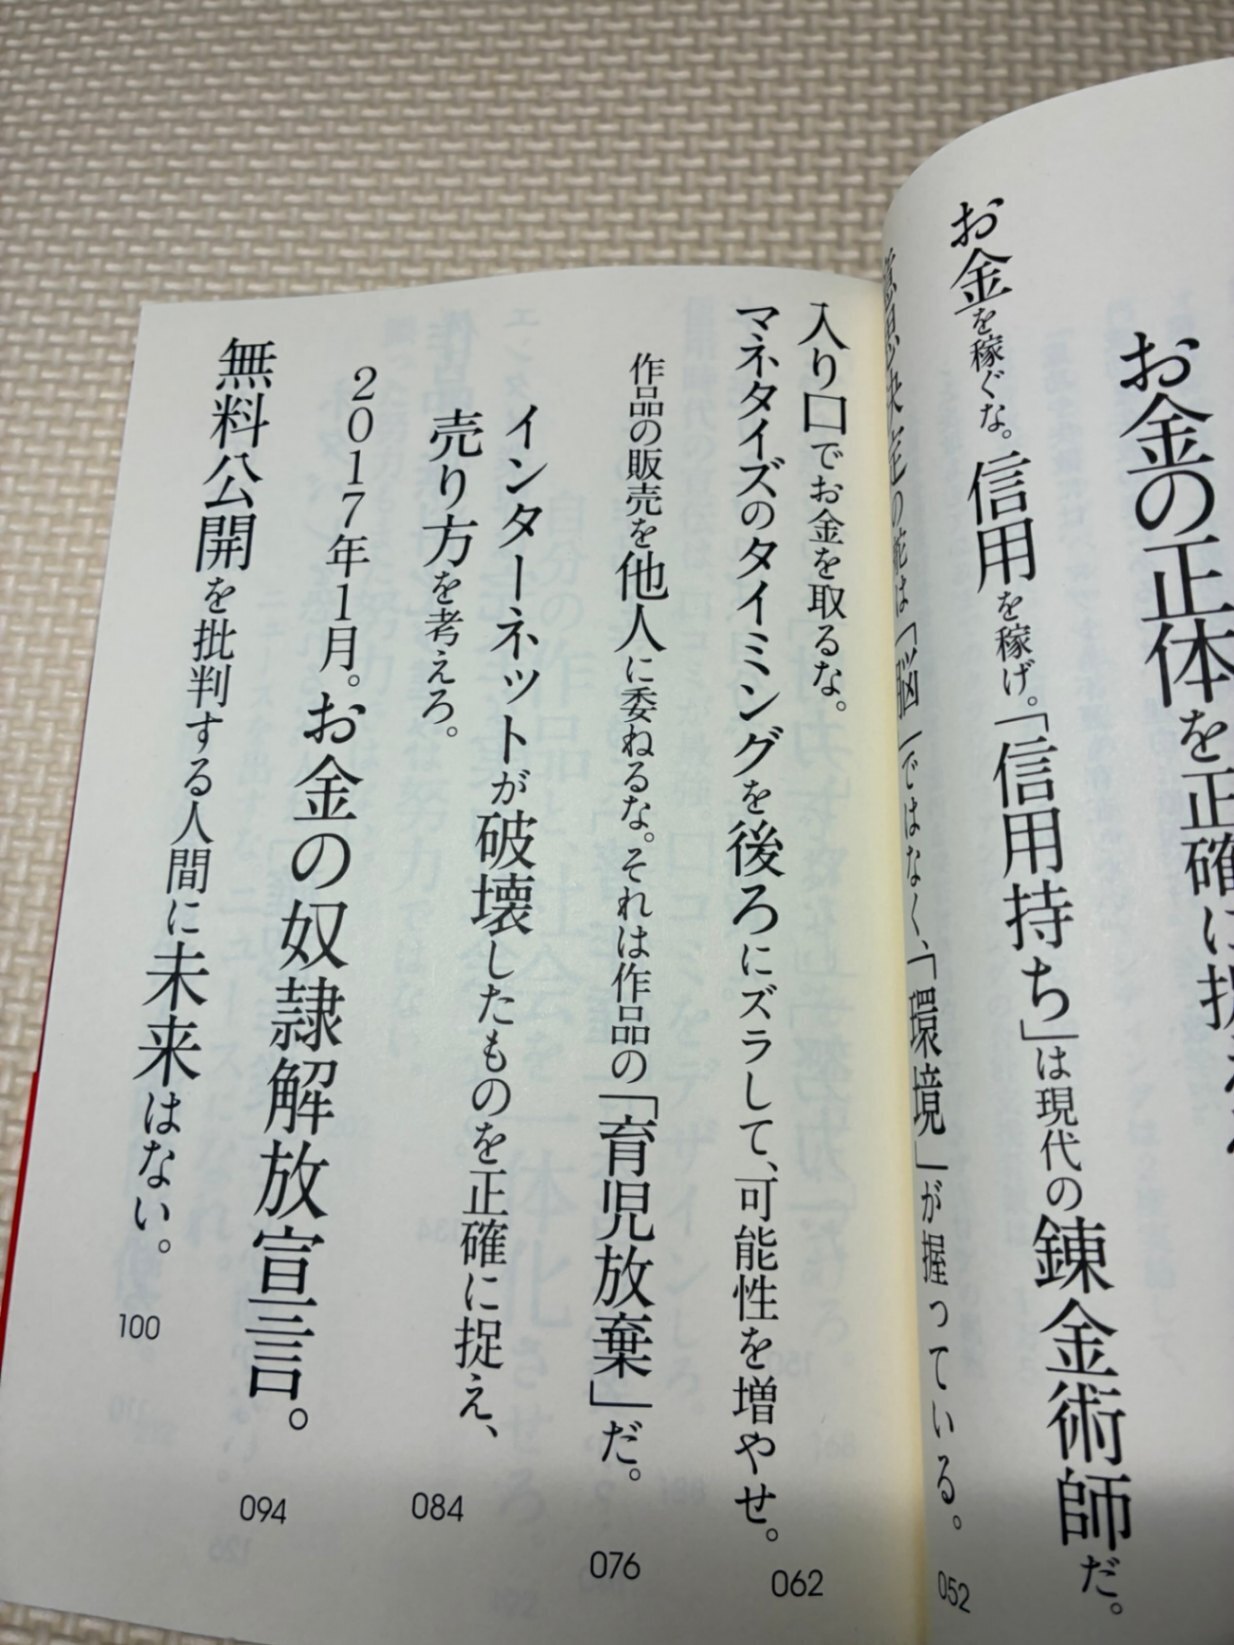 お金の正体を正確に
お金を稼ぐな。信用を稼げ。「信用持ち」は現代の錬金術師だ。
意思決定の舵は「脳」ではなく、「環境」が握っている。
052
入り口でお金を取るな。
マネタイズのタイミングを後ろにズラして、可能性を増やせ。
062
作品の販売を他人に委ねるな。それは作品の「育児放棄」だ。
076
インターネットが破壊したものを正確に捉え、
売り方を考えろ。
084
2017年1月。お金の奴隷解放宣言。
094
無料公開を批判する人間に未来はない。
100